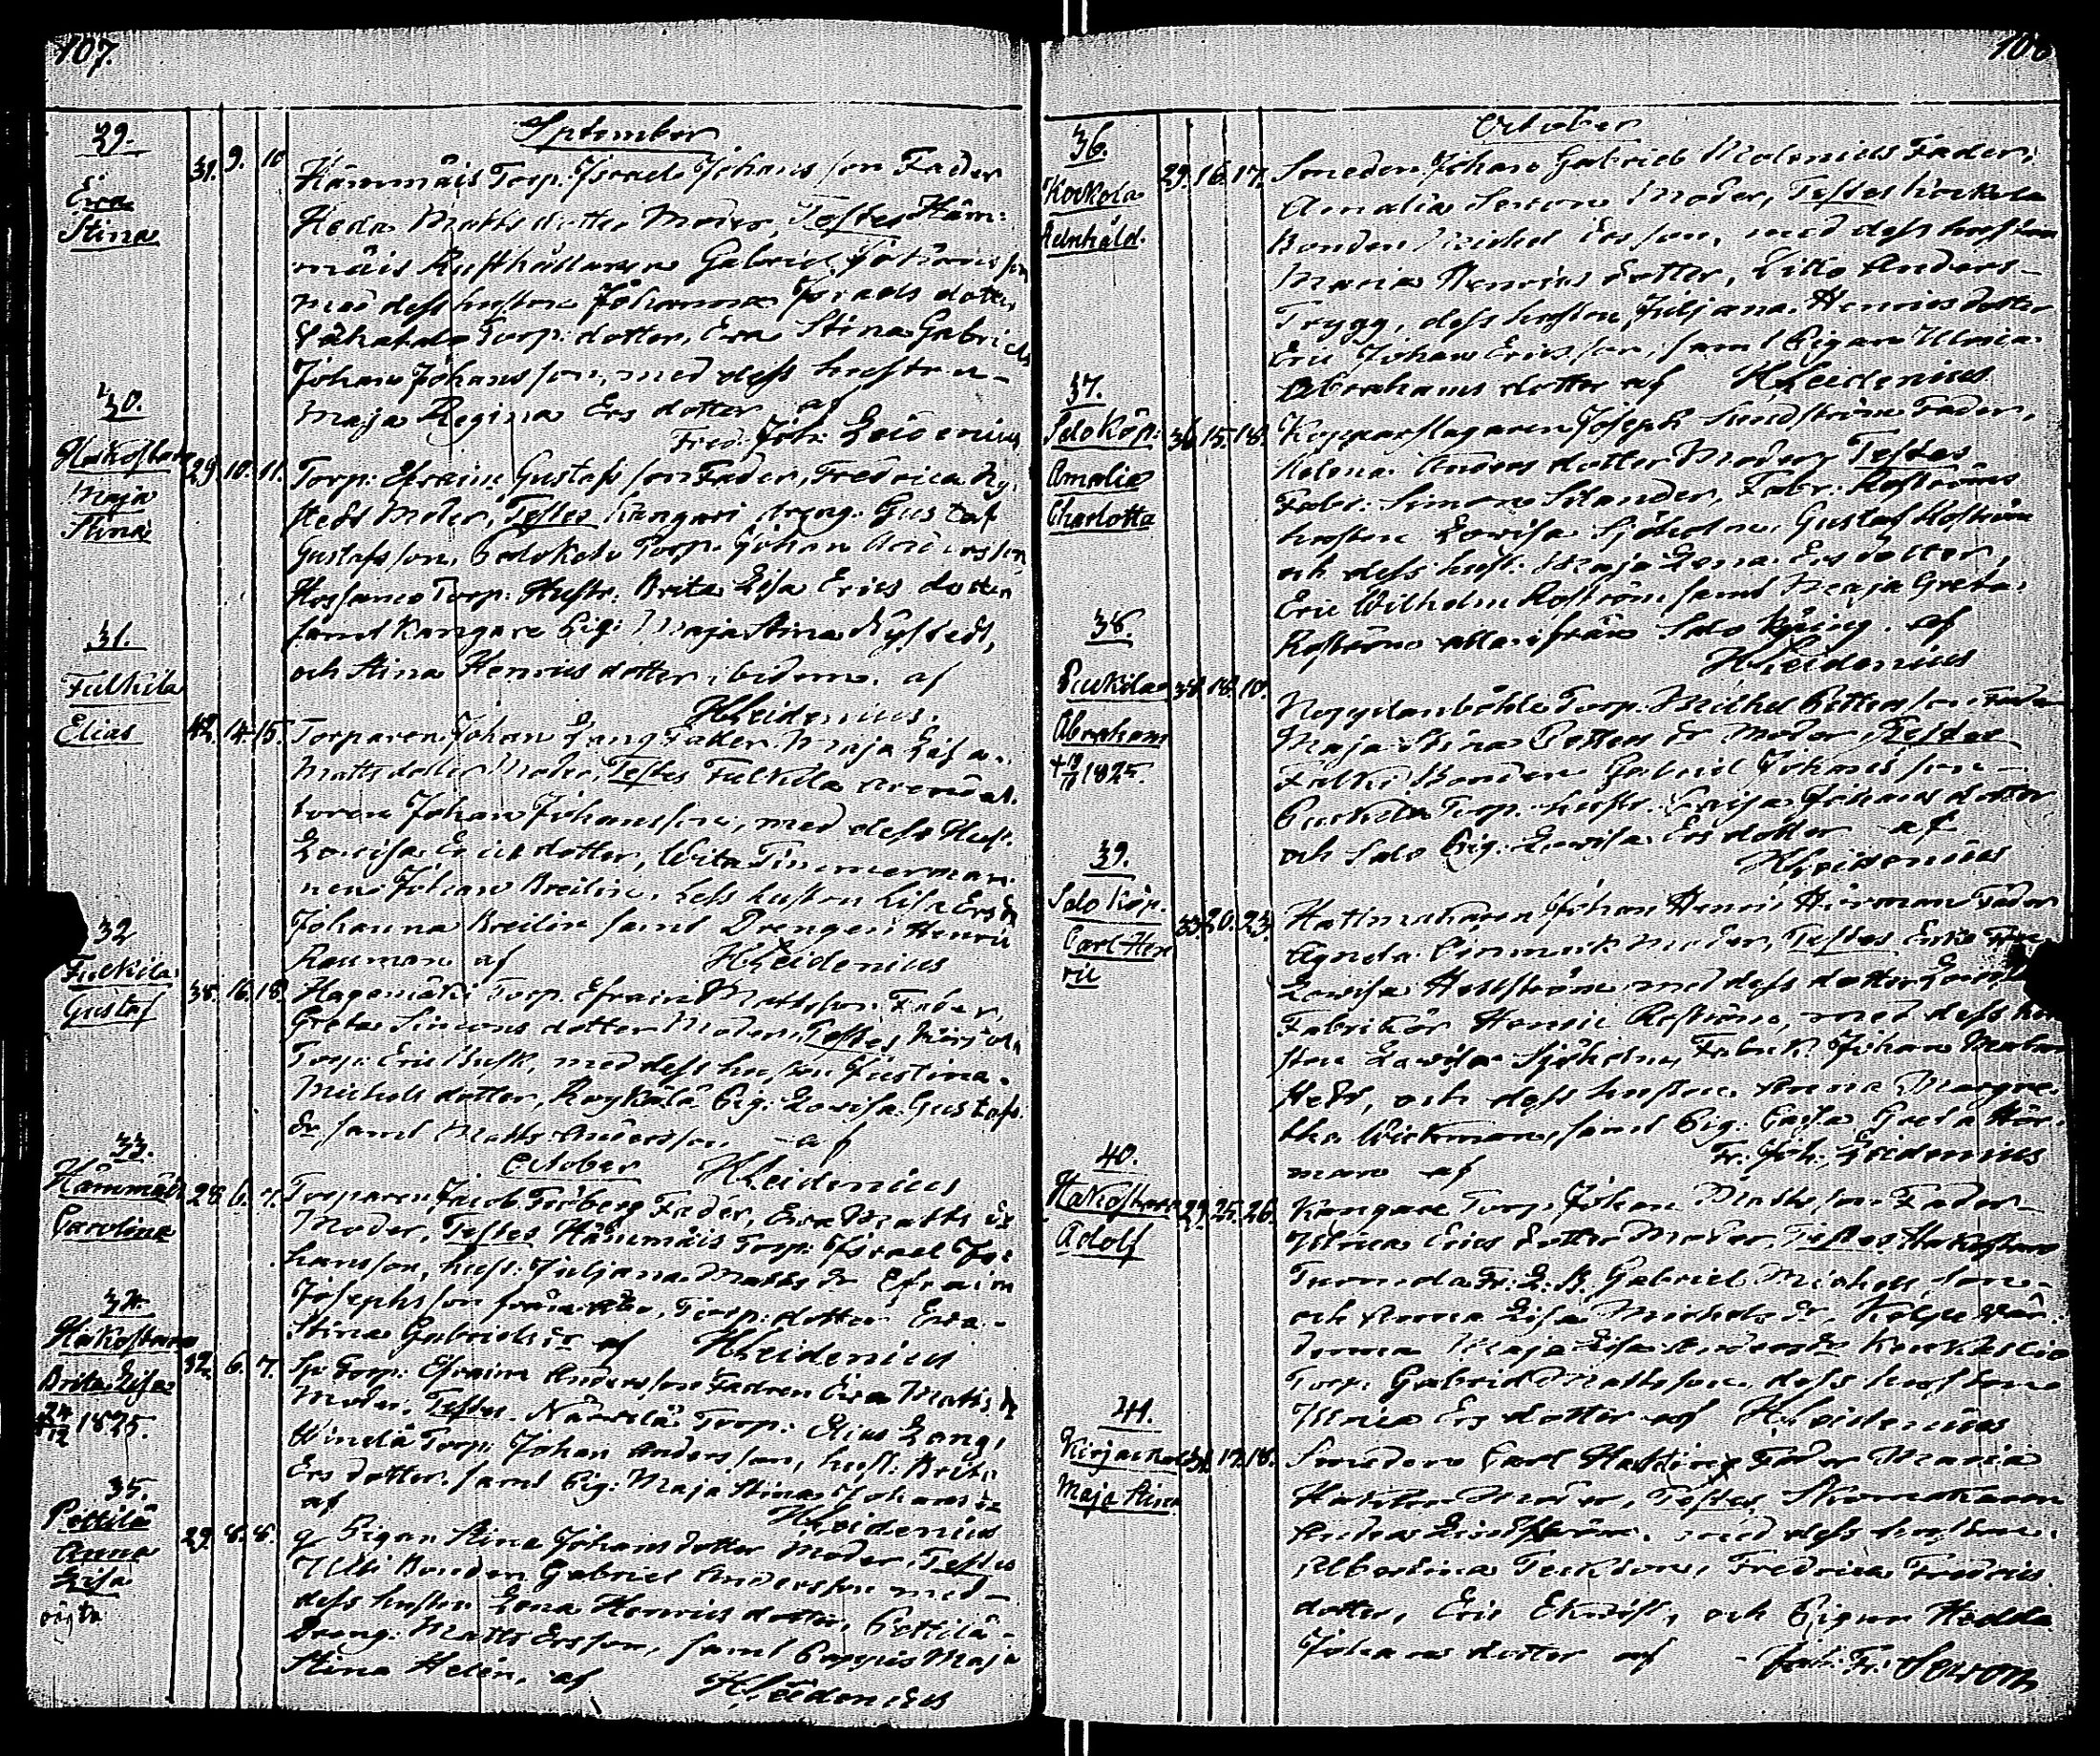 107.
September
29.
Eva
Stina
31. 9. 10
Hämmäis Torp. Israel Johansson Fader
Heda Mattsdotter Moder, Testes Häm-
mäis Rusthållaren Gabriel Johansson
med dess hustru Johanna Israels dotter
Torp: dotter, Eva Stina Gabriels
Johan Johansson, med dess hustru
Maja Regina Ersdotter af
Fred: Joh: Leidenius
30.
Hakostaro
Maja
Stina
29. 10. 11.
Torp: Efraim Gustafsson Fader, Fredrica Ny-
stedt Moder, Testes Kangari dreng: Gustaf
Gustafsson, Torp. Johan Andersson
Torp: Hustr: Brita Lisa Erics dotter
samt Kangare Pig: Maja Stina Nystedt,
och Stina Henricsdotter ibidem. af
HLeidenius.
31.
Fulkila
Elias
42. 14. 15.
Torparen Johan Lang Fader Maja Lisa
Mattsdotter Moder, Testes Fulkila arenda-
toren Johan Johansson, med dess Hust.
Lowisa Ericsdotter, Timmerman-
nen Johan Breilin, dess hustru Lisa Ersdr
Johanna Breilin samt Drengen Henric
Rauman af HLeidenius
32
Fulkila
Gustaf
38. 16. 18.
Hagamäki Torp. Efraim Mattsson Fader,
Greta Simonsdotter Moder, Testes
Torp: Eric Busk, med dess hustru Justina
Michelsdotter, Pig: Lowisa Gustafs
dr samt Matts Andersson af
October HLeidenius
33.
Hämmäis
Carolina
28. 6. 7.
Torparen Jacob Forberg Fader, Eva Matts dr
Moder, Testes Hämmäis Torp: Israel Jo-
hansson, hust: Juljana Matts dr Efraim
Josephsson från Torp: dotter Eva
Stina Gabriels dr af HLeidenius
34.
Hakostaro
Brita Lisa
+ 24/12 1825.
32. 6. 7.
Torp: Efraim Andersson Fadren Eva Matts dr
Moder. Testes Torp: Elias Lang,
Torp: Johan Andersson, hust: Brita
Ersdotter samt Pig: Maja Stina Johans dr
af HLeidenius
35.
Pettilä
Anna
Lisa
oägta
29. 8. 8.
Pigan Stina Johansdotter Moder, Testes
Bonden Gabriel Andersson med
dess hustru Lena Henricsdotter, Pettilä
Dreng: Matts Ersson, samt Maja
Stina Helén, af HLeidenius
108
October
36.
Kockola
Adnhäld.
29. 16. 17.
Smeden Johan Gabriel Molenius Fader,
Amalia Seron Moder, Testes Kockola
Bonden Michel Ersson, med dess hustru
Maria Henricsdotter, Anders
Trygg, dess hustru Juljana Henricsdotter
Eric Johan Ericsson, samt Pigan Ulrica
Abrahamsdotter af HLeidenius
37.
Salo Köp:
Amalia
Charlotta
36. 15. 18.
Kopparslagaren Joseph Sundström Fader,
Helena Andersdotter Moder, Testes
Fabr: Simon Selander, Fabr: Roströms
hustru Lovisa Sjöholm, Gustaf Roström
och dess hust: Maja Lena Ersdotter,
Eric Wilhelm Roström samt Maja Greta
Roström allan ifrån Salo Köping. af
HLeidenius
38
Puckila
Abraham
1825.
38. 18. 19.
Torp. Michel Pettersson Fader
Maja Stina Petters dr Moder, Testes
Bonden Gabriel Johansson
Puckila Torp. hustr. Johansdotter
och Salo Pig: Lowisa Ersdotter af
HLeidenius
39.
Salo Köp.
Carl Hen
ric
33. 20. 23.
Hattmakaren Johan Henric Hörman Fader
Agneta Moder, Testes Enke Fru
Lowisa Hellström med dess dotter
Fabrikör Henric Roström, med dess hu
stru Lowisa Sjöholm, Fabrik. Johan Malm
stedt, och dess hustru Anna Margre-
tha Wickman, samt Pig. Cajsa Greta Hör-
man af Fr: Joh: Leidenius
40.
Hakostaro
Adolf
29. 25. 26.
Kangare Torp. Johan Mattsson Fader
Ulrica Ericsdotter Moder, Testes Hakostaro
Gabriel Michelsson
och Anna Lisa Michels dr,
Maja Lisa
Torp: Gabriel Mattsson, dess hustru
Ulrica Ersdotter af HLeidenius
41.
Maja Stina
34. 17. 18.
Smeden Carl Fader Maria
Moder, Testes Skomakaren
med dess hustru
Albertina Fredrica Fredrics
dotter, Eric Ekqvist, och Pigan Hedda
Johansdotter af Joh: Fr: Seron